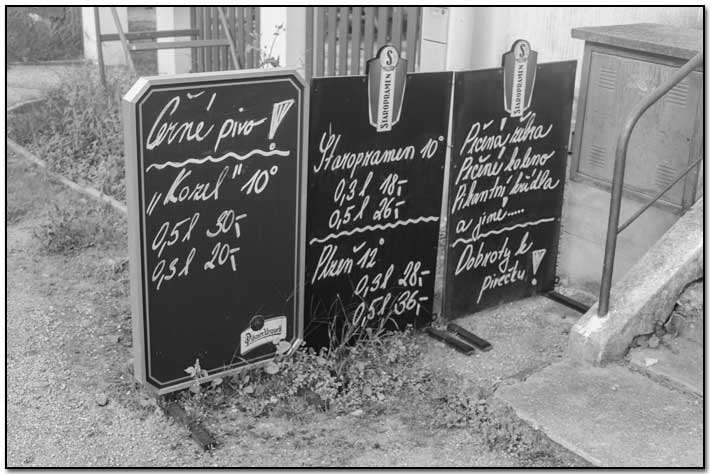 Černé pivo!
„Kozel" 10°
0,5l 30,-
0,3l 20,-
Pilsner Urquell
S
STAROPRAMEN
Staropramen 10°
0,3l 18,-
0,5l 26,-
Plzeň 12°
0,3l 28,-
0,5l 36,-
S
STAROPRAMEN
Pečená žebra
Pečené koleno
Pikantní křídla
a jiné.....
Dobroty k
pivečku!